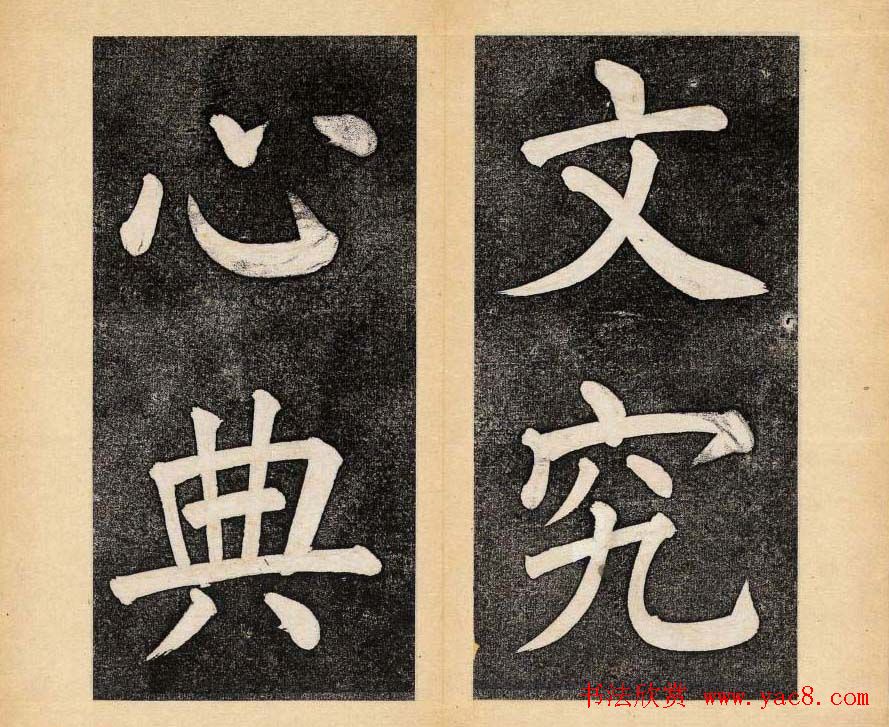 文究
心典
书法欣赏 www.yac8.com